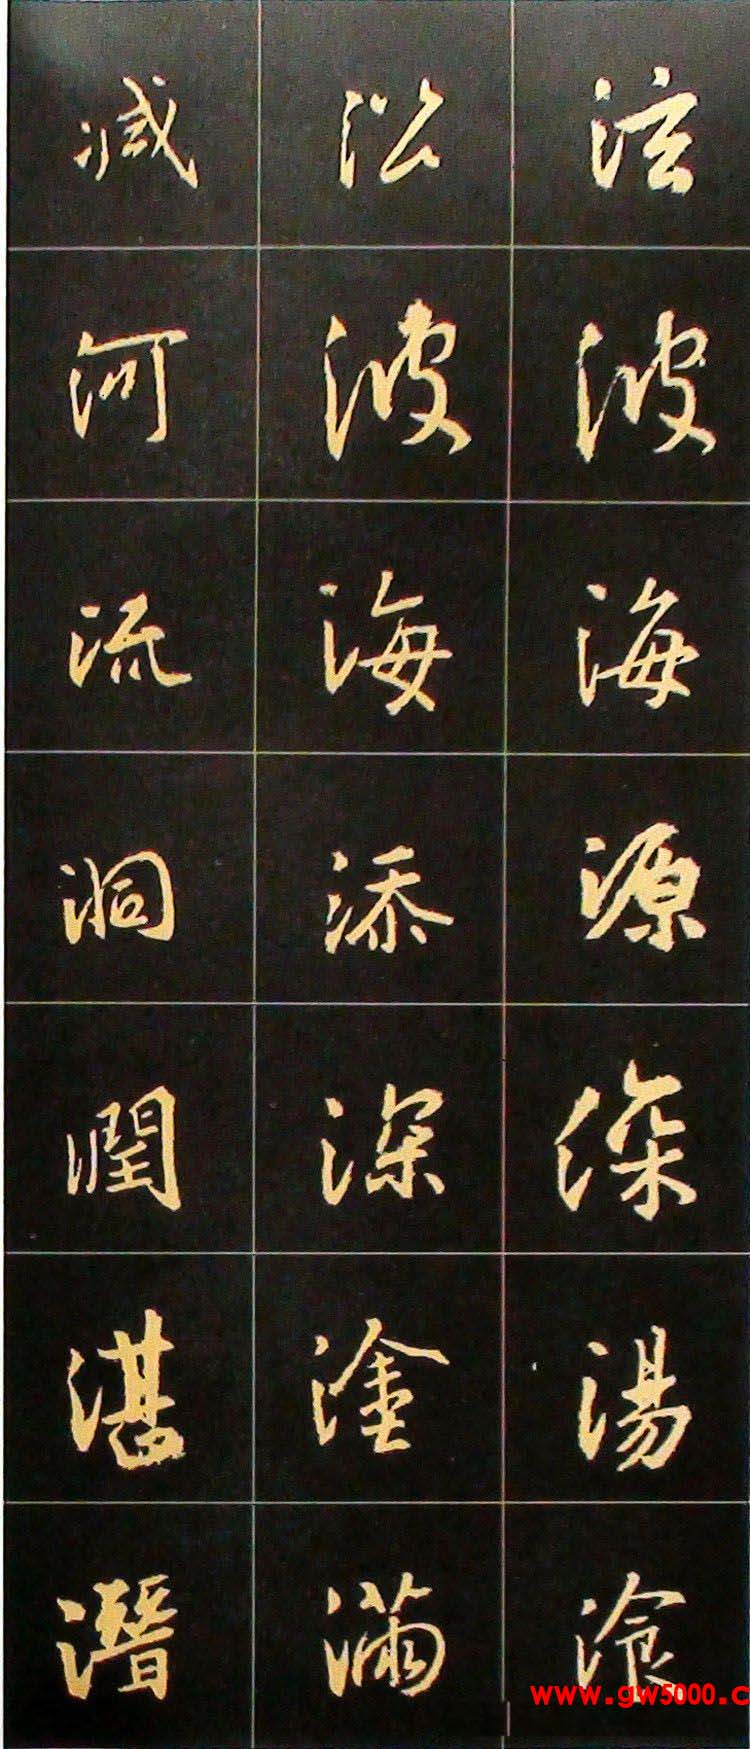 泫波海源深湯湌
波海添深塗滿
减河流洞潤湛潛
www.gw5000.c